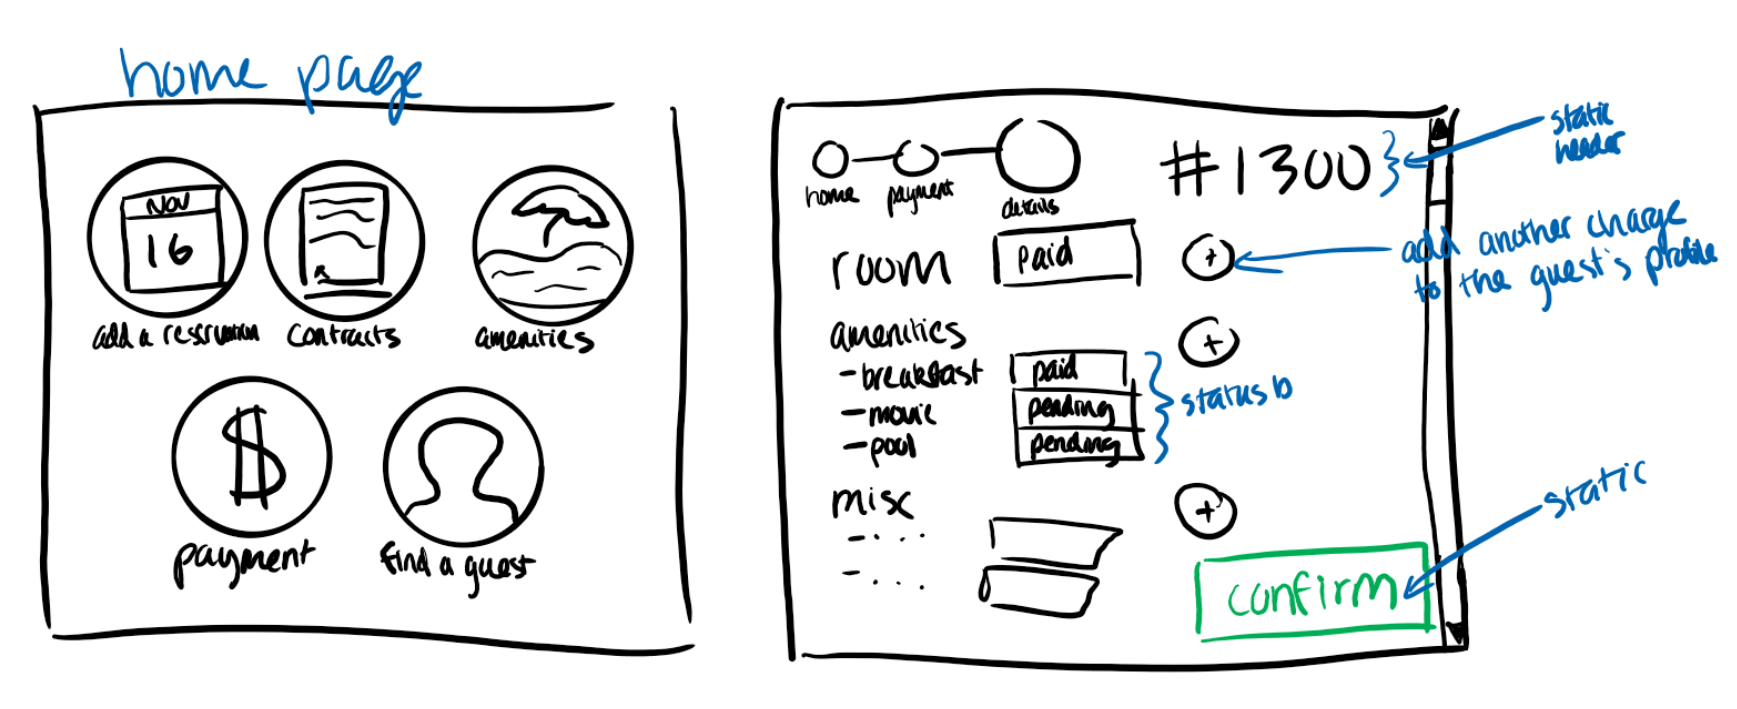 home page
NOV
16
add a reservation
contracts
amenities
payment
find a guest
home
payment
details
#1300
static
header
room
paid
+
add another charge
to the guest's profile
amenities
+
-breakfast
paid
-movie
pending
-pool
pending
status b
misc
+
-....
-....
confirm
static